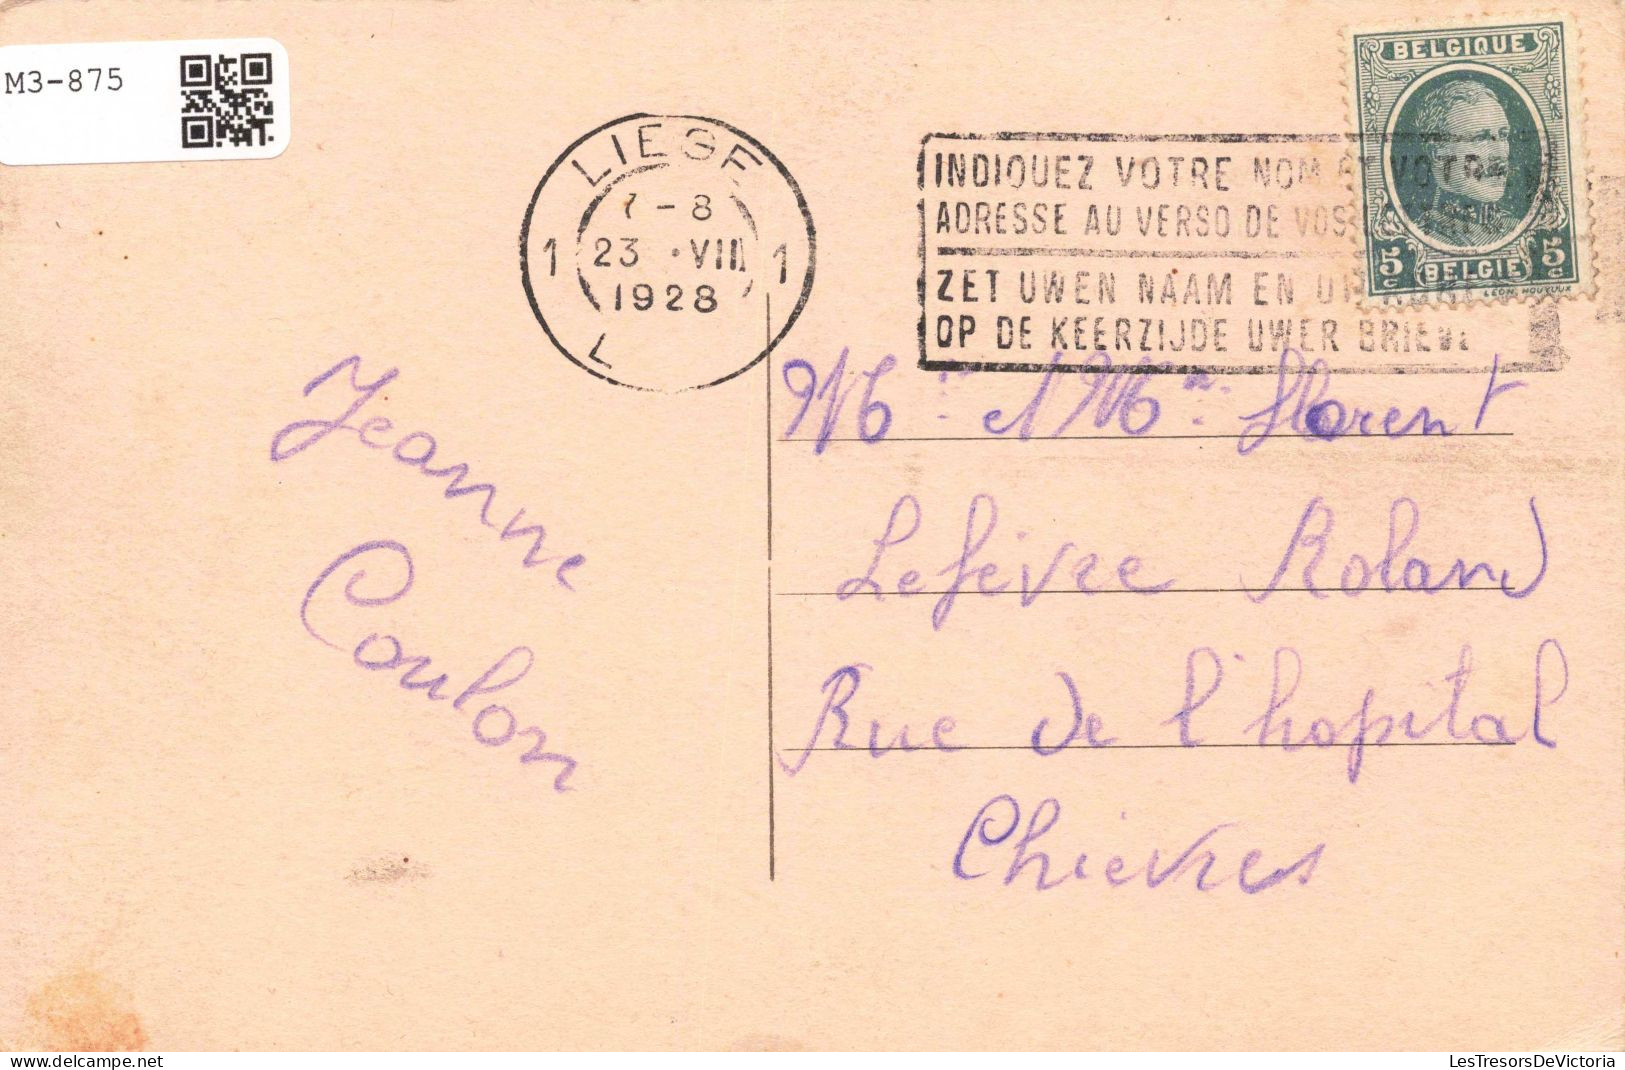 M3-875
LIEGE
7-8
1 23 ·VIII 1
1928
L
INDIQUEZ VOTRE NOM ET VOTRE
ADRESSE AU VERSO DE VOS
ZET UWEN NAAM EN
OP DE KEERZIJDE UWER BRIEVE
BELGIQUE
5c 5c
BELGIE
LEON. HOUYOUX
Jeanne
Coulon
Mr et Mme Florent
Lefèvre Roland
Rue de l'hopital
Chièvres
LesTresorsDeVictoria